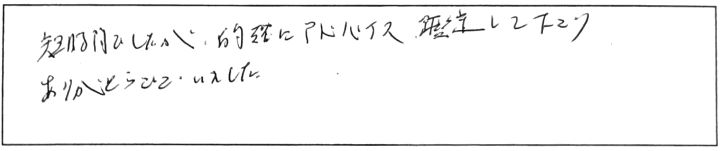 短時間でしたが、的確にアドバイス 鑑定して下さり
ありがとうございました